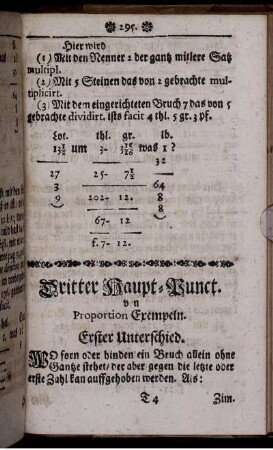 295.
Hier wird
(1) Mit den Nenner 2 der gantz mitlere Satz
multipl.
(2) Mit 5 Steinen das von 2 gebrachte mul-
tiplicirt.
(3) Mit dem eingerichteten Bruch 7 das von 5
gebrachte dividirt. ists facit 4 thl. 5 gr. 3 pf.
Lot. thl. gr. lb.
um 3- was 1 ?
32
27 25- 7½
3 64
9 202- 12. 8
8
67- 12
f. 7- 12.
Dritter Haupt-Punct.
vn
Proportion Exempeln.
Erster Unterschied.
WO forn oder hinden ein Bruch allein ohne
Gantze stehet/ der aber gegen die letzte oder
erste Zahl kan auffgehoben werden. Als:
T 4 Zim.